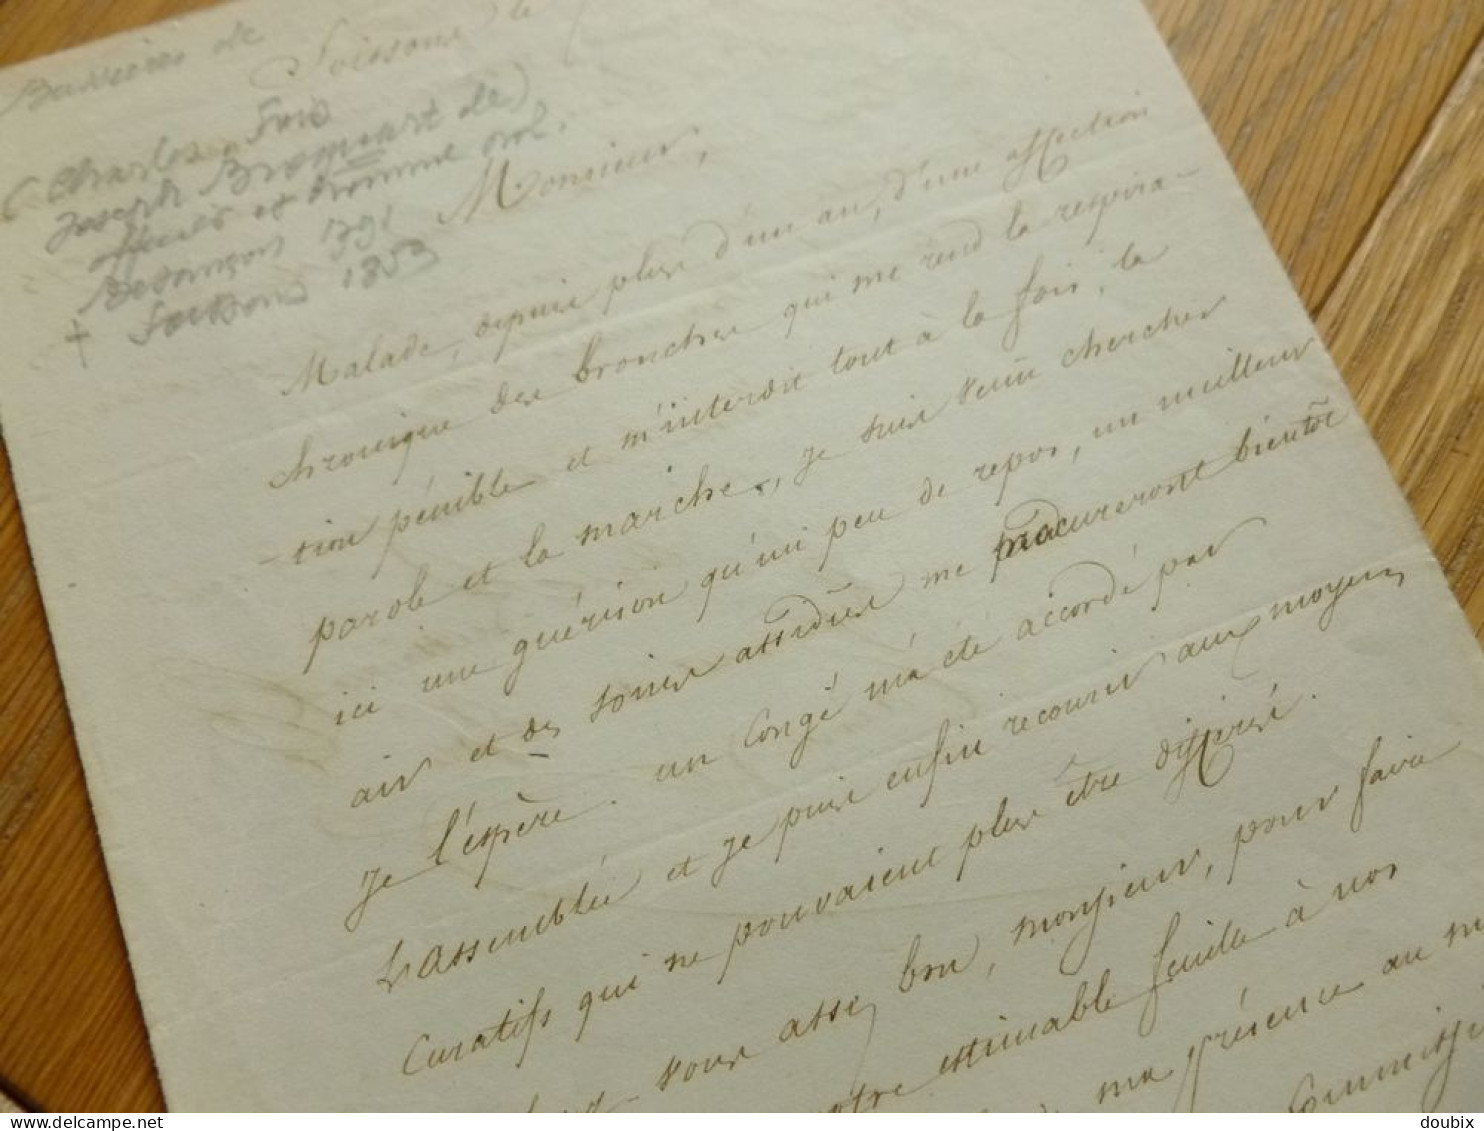 Bussières de
Soissons le
(Charles Fois
Joseph Broquart de)
officier et homme pol.
Besançon 791
+ Soissons 1853
Monsieur,
Malade, depuis plus d'un an, d'une affection
chronique des bronches qui me rend la respira-
-tion pénible et m'interdit tout à la fois, la
parole et la marche, je suis venu chercher
ici une guérison qu'un peu de repos, un meilleur
air et des soins assidus me procureront bientôt
je l'espère. un congé m'a été accordé par
L'assemblée et je puis enfin recourir aux moyens
curatifs qui ne pouvaient plus être différés.
vous assez bon, monsieur, pour faire
votre estimable feuille à nos
ma présence au m
Commiss
www.delcampe.net
doubix